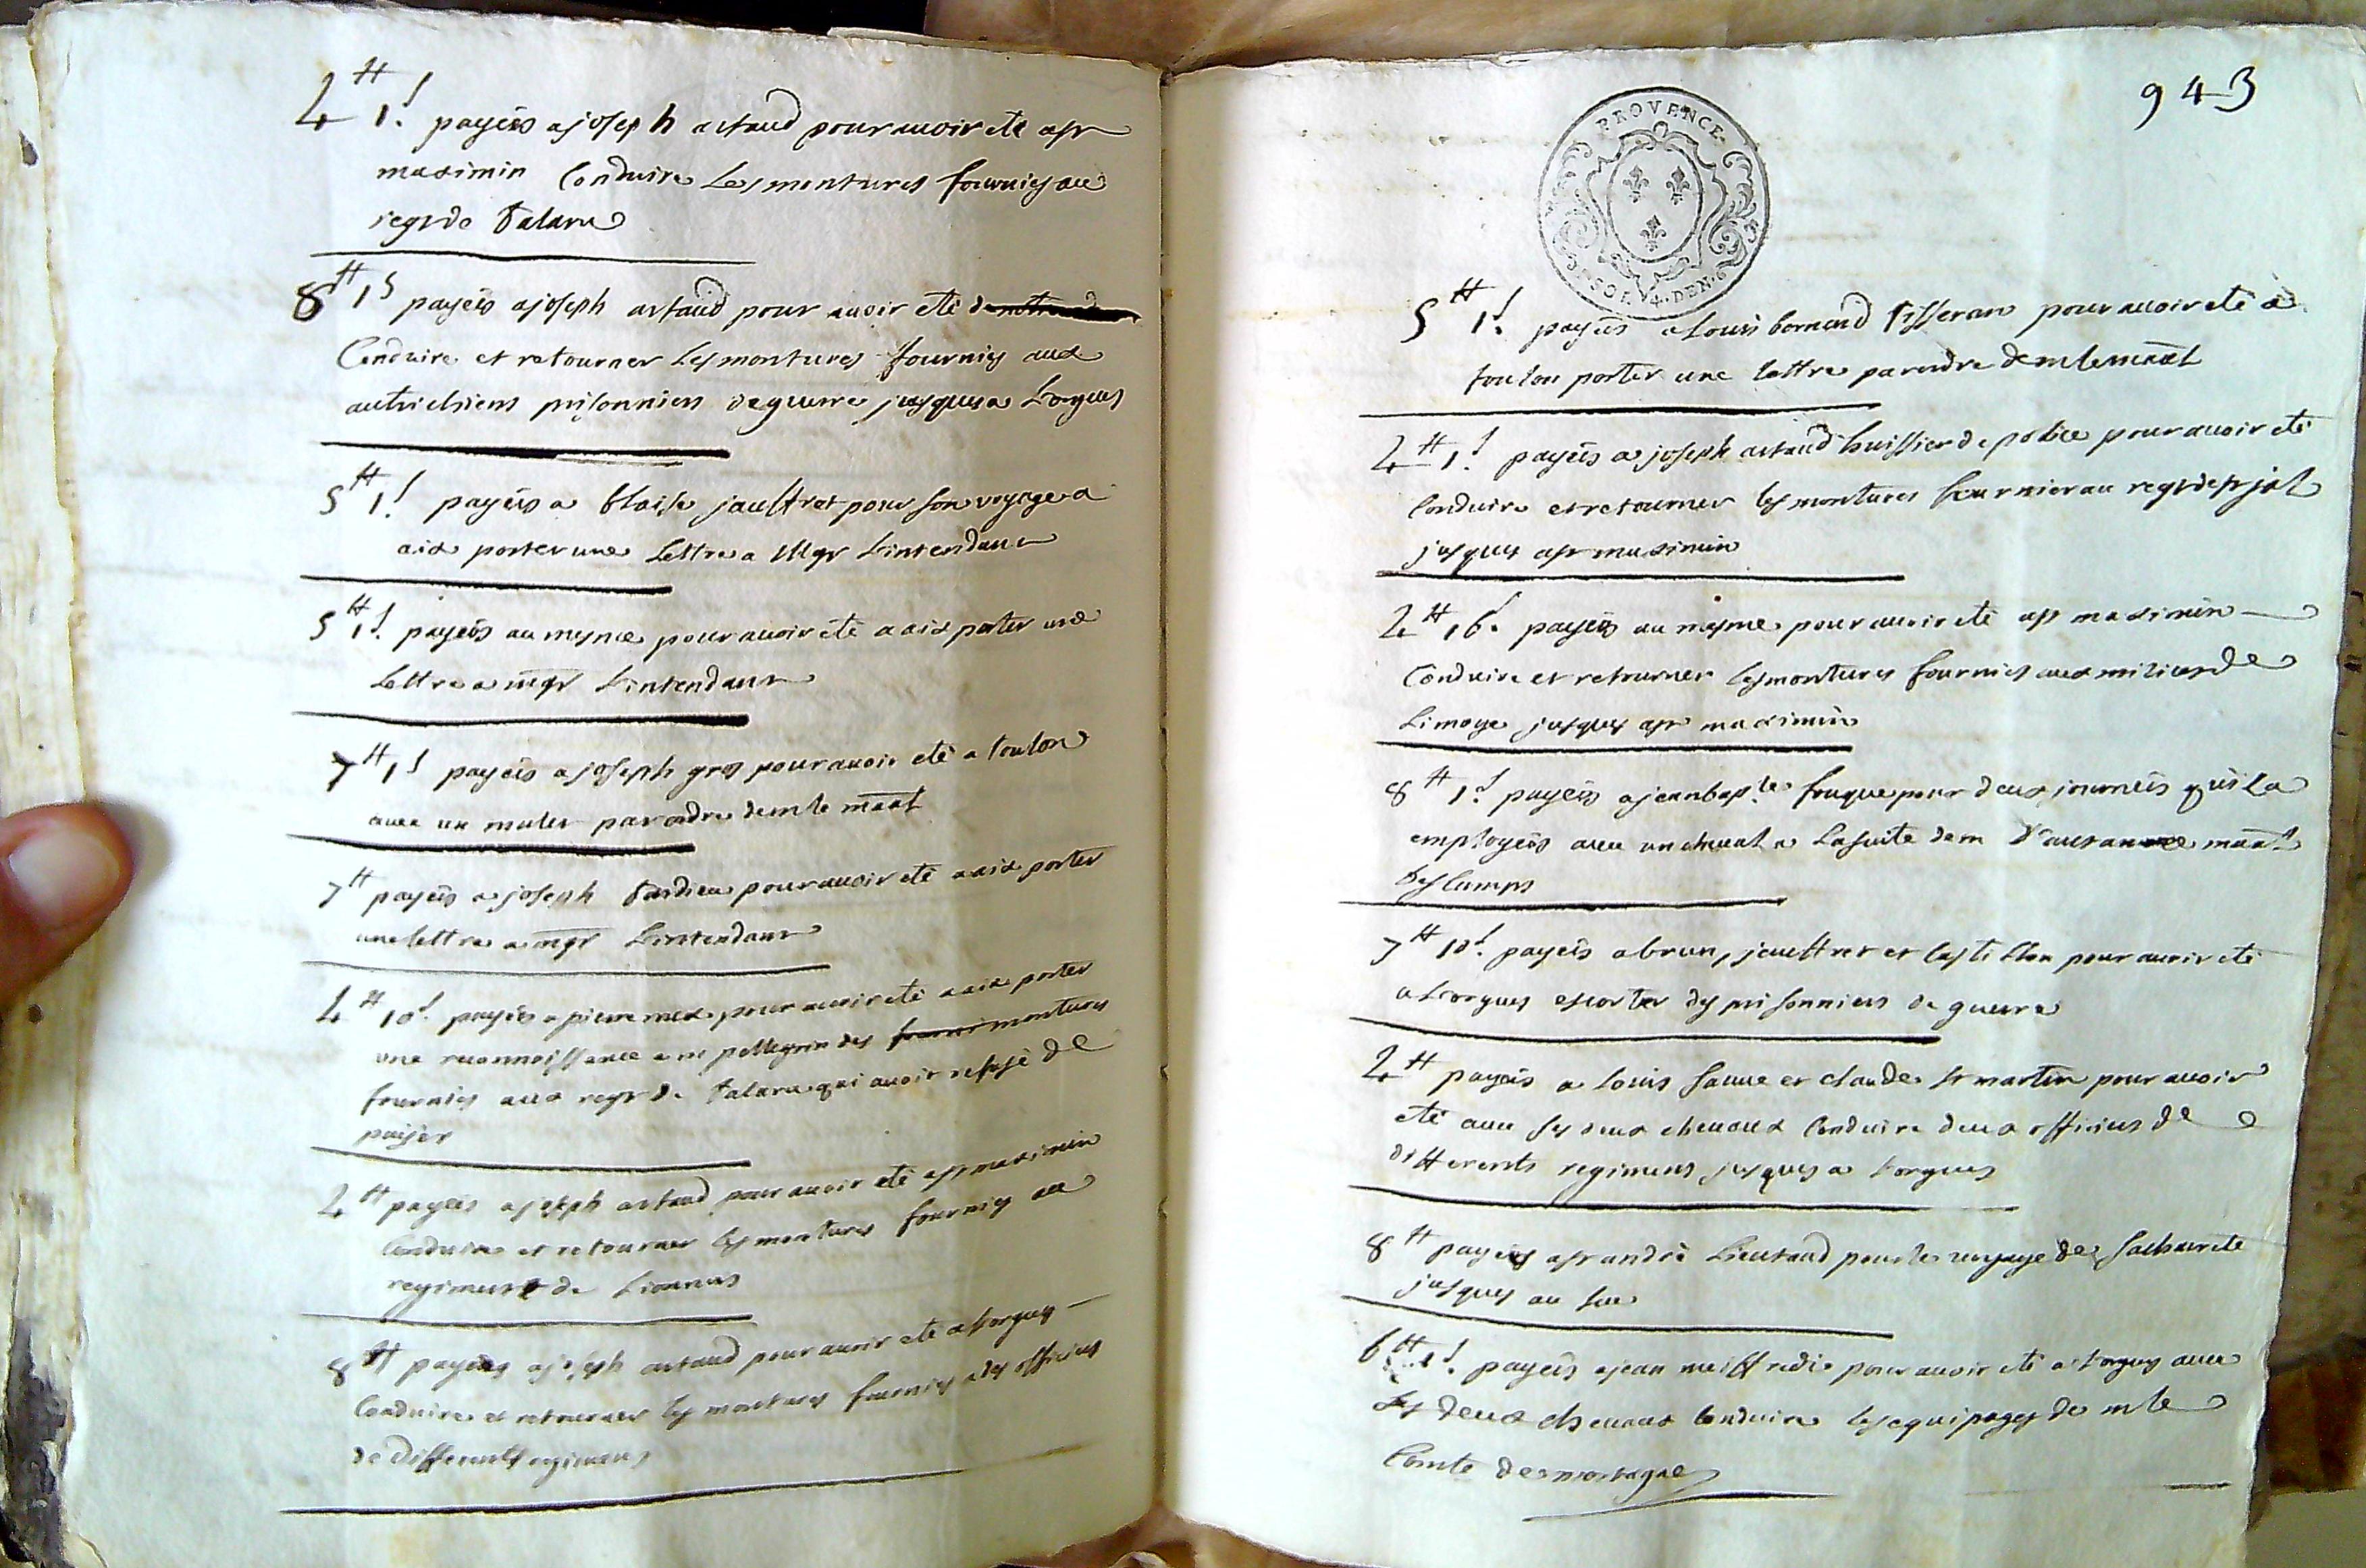 4ᵗᵗ 1ˢ payées a joseph artaud pour auoir eté a sᵗ
maximin Conduire les montures fournies au
regᵗ de talaru
8ᵗᵗ 1ˢ payées a joseph artaud pour auoir eté
Conduire et retourner les montures fournies aux
autrichiens prisonniers de guerre jusques a Lorgues
5ᵗᵗ 1ˢ payées a blaise jauffret pour son voyage a
aix porter une Lettre a Mgr L'intendant
5ᵗᵗ 1ˢ payées au mesme pour auoir eté a aix porter une
Lettre a mgr L'intendant
7ᵗᵗ 1ˢ payées a joseph gros pour auoir eté a toulon
auec un mulet par ordre de m le maal
7ᵗᵗ payées a joseph tardieu pour auoir eté a aix porter
une lettre a mgr L'intendant
4ᵗᵗ 10ˢ payées a pierre mex pour auoir eté a aix porter
une reconnoissance a m pellegrin des fourni montures
fournies aux regᵗ de talaru qui auoit refusé de
paijer
4ᵗᵗ payées a joseph artaud pour auoir eté a sᵗ maximin
Conduire et retourner les montures fournies au
regiment de Lionnois
8ᵗᵗ payées a joseph artaud pour auoir eté a Lorgues
Conduire et retourner les montures fournies a des officiers
de differents regimens
943
PROVENCE
SOL 4 DEN
5ᵗᵗ 1ˢ payées a Louis bernard tisseran pour auoir eté a
toulon porter une lettre par ordre de m le maal
4ᵗᵗ 1ˢ payées a joseph artaud huissier de police pour auoir eté
Conduire et retourner les montures fournies au regᵗ de
jusques a sᵗ maximin
4ᵗᵗ 16 payées au mesme pour auoir eté a sᵗ maximin
Conduire et retourner les montures fournies aux milices de
Limoge jusques a sᵗ maximin
8ᵗᵗ 1ˢ payées a jean bapᵗᵉ fouque pour deux journées qu'il a
employées auec un cheual a La suite de m maal
des Camps
7ᵗᵗ 10ˢ payées a brun, jauffret et Castillon pour auoir eté
a Lorgues escorter des prisonniers de guerre
4ᵗᵗ payées a Louis Sauue et claude sᵗ martin pour auoir
eté auec ses deux cheuaux Conduire deux officiers de
differents regimens jusques a Lorgues
8ᵗᵗ payées a sᵗ andré Lieutaud pour le voyage de sa charete
jusques au Luc
6ᵗᵗ 1ˢ payées a jean meiffredi pour auoir eté a Lorgues auec
ses deux cheuaux Conduire les equipages de m le
Comte de mortagne